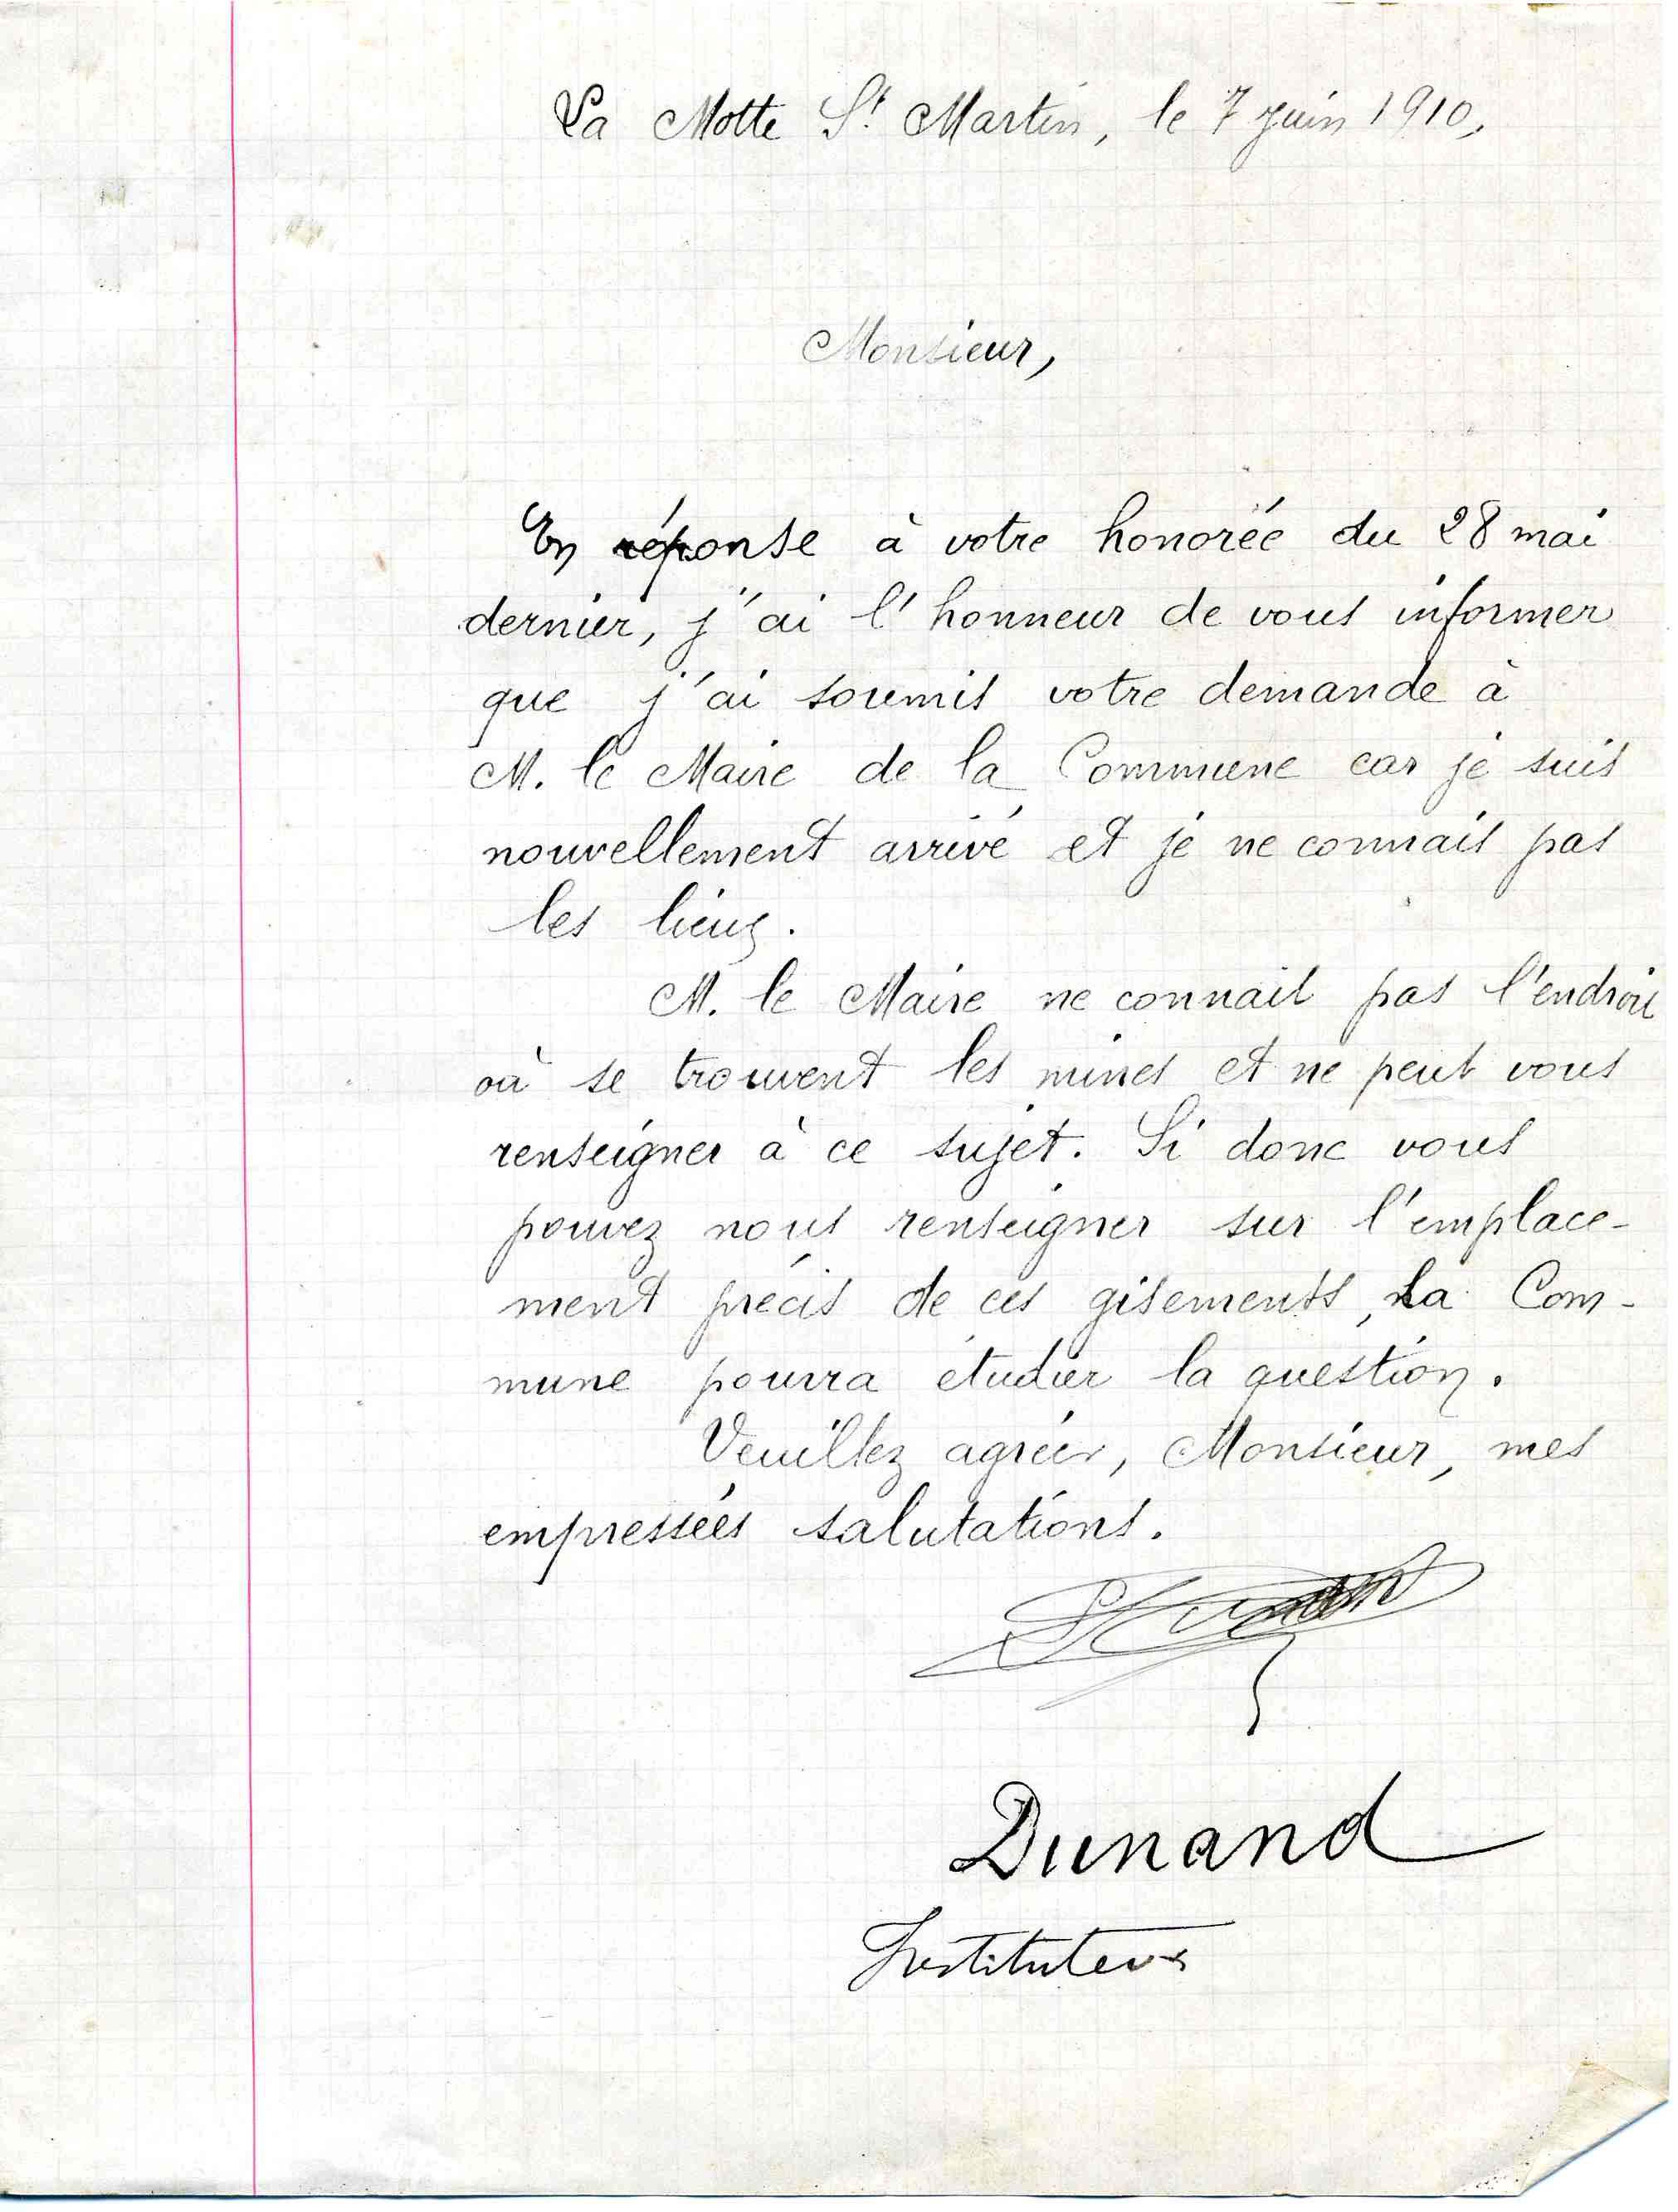 La Motte St Martin, le 7 juin 1910,
Monsieur,
En réponse à votre honorée du 28 mai
dernier, j'ai l'honneur de vous informer
que j'ai soumis votre demande à
M. le Maire de la Commune car je suis
nouvellement arrivé et je ne connais pas
les lieux.
M. le Maire ne connait pas l'endroit
où se trouvent les mines et ne peut vous
renseigner à ce sujet. Si donc vous
pouvez nous renseigner sur l'emplace-
ment précis de ces gisements, La Com-
mune pourra étudier la question.
Veuillez agréer, Monsieur, mes
empressées salutations.
Dunand
Instituteur